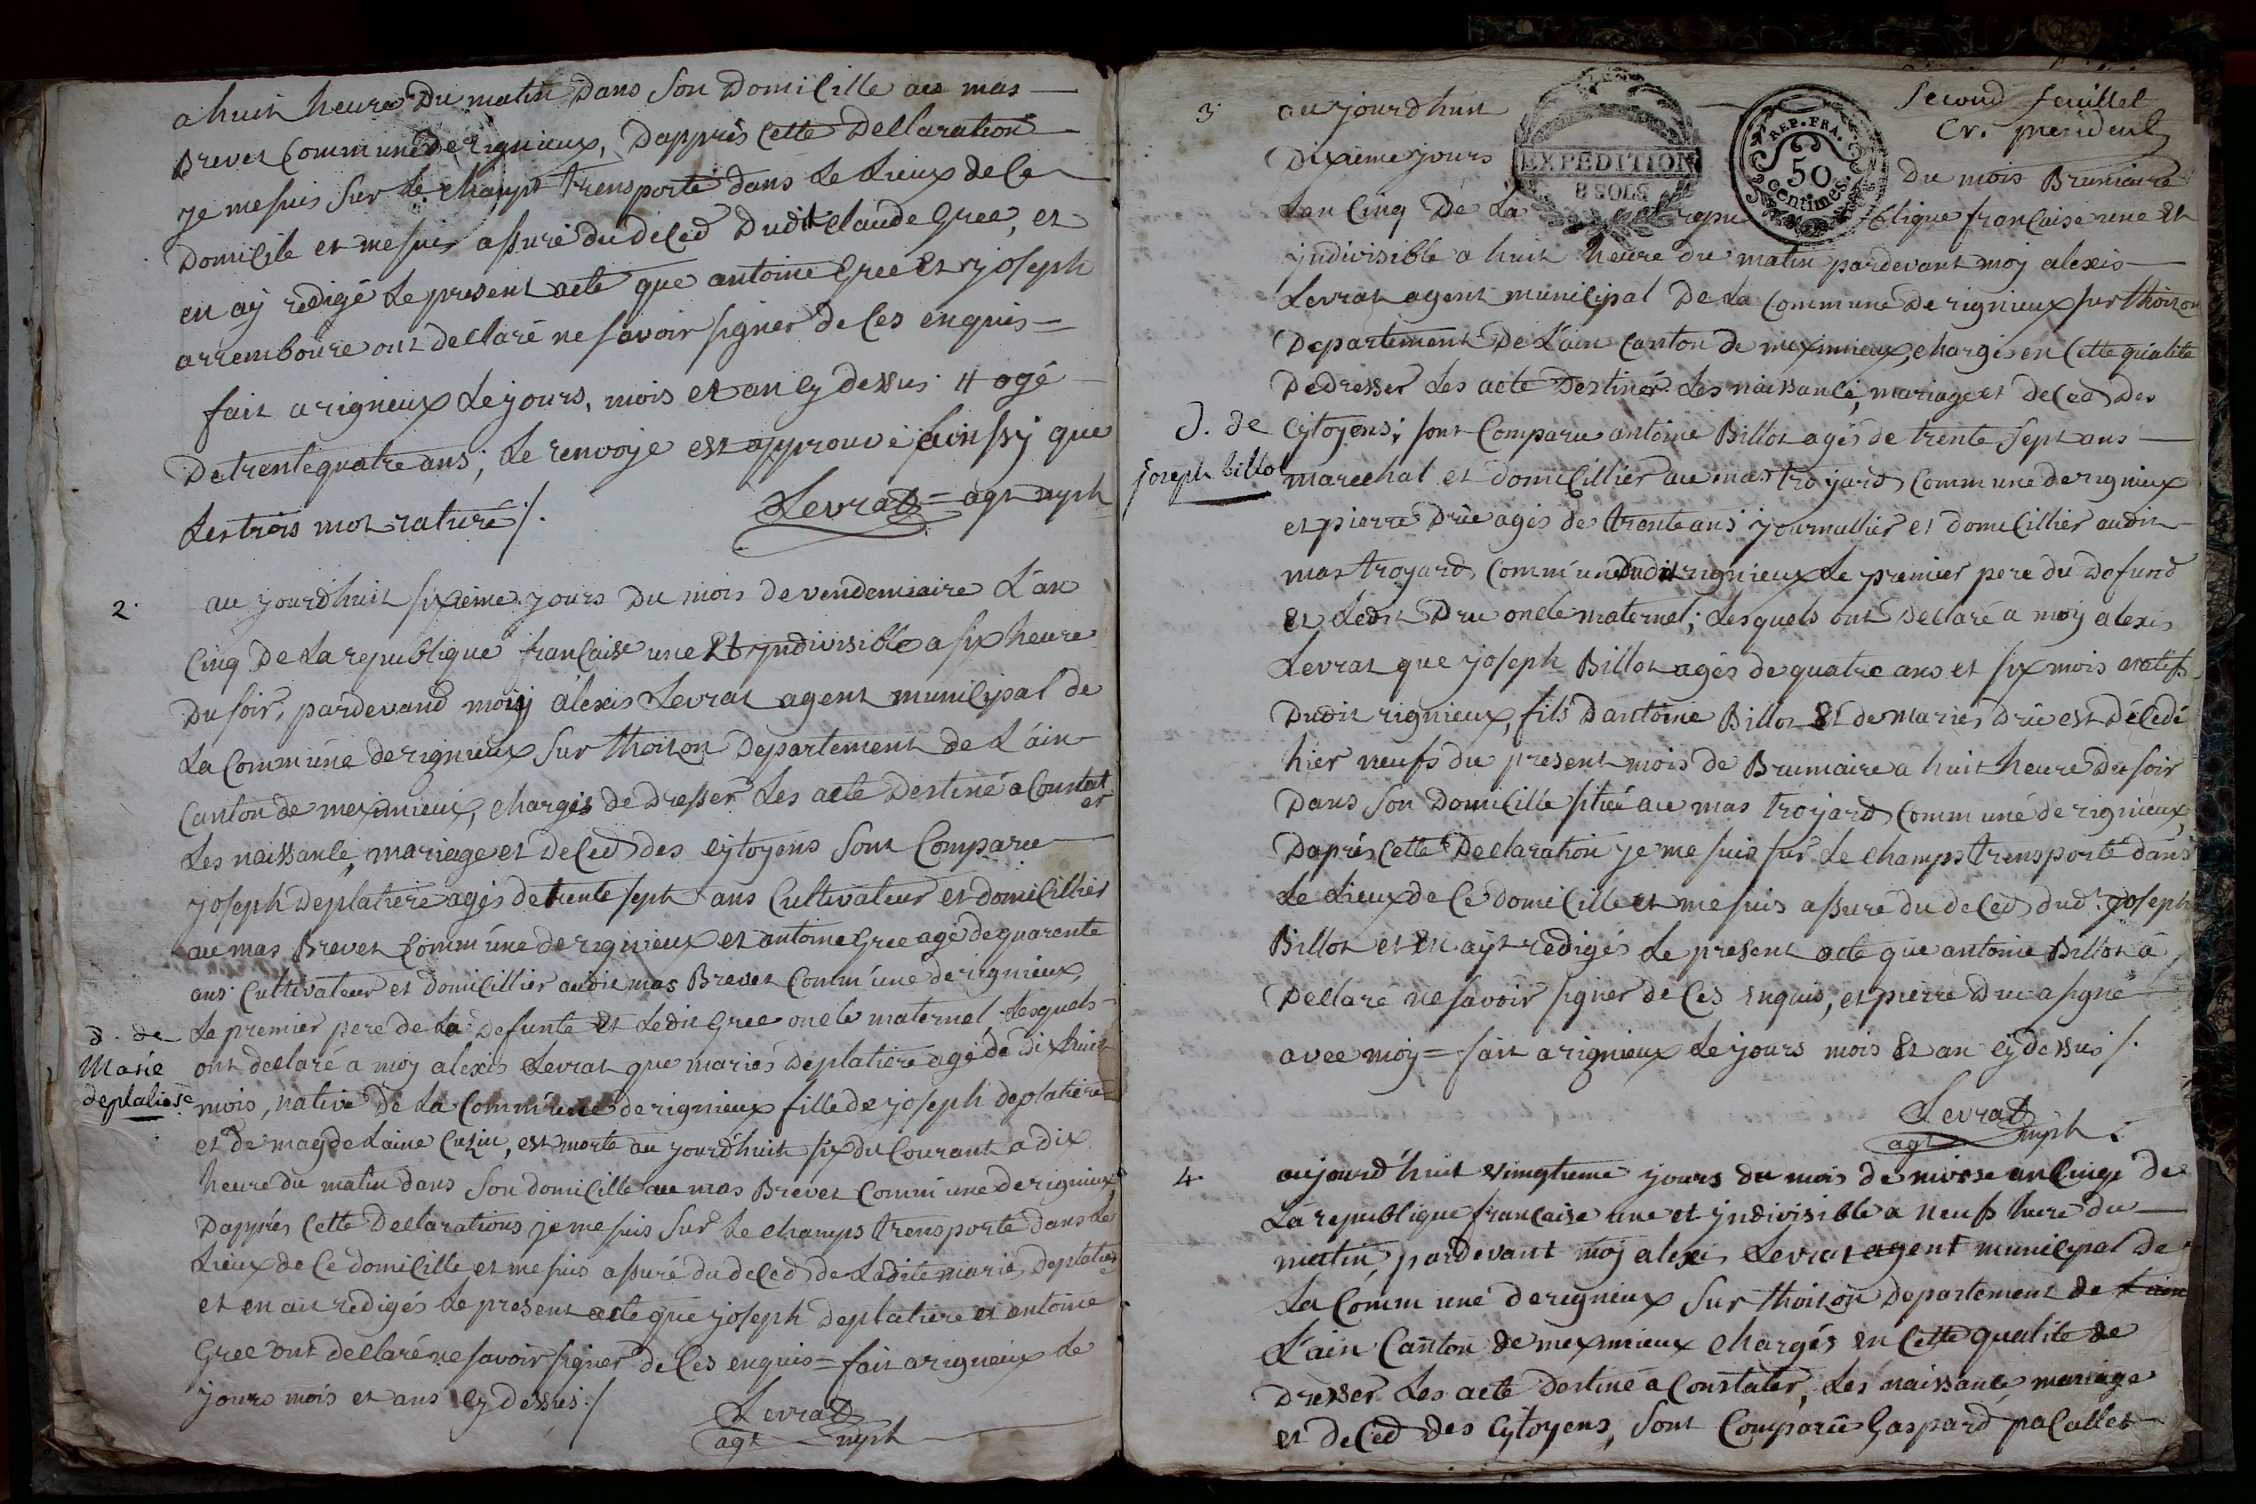 a huit heure Du matin Dans Son Domicille au mas
Brevet Commune De rignieux, Dapprès Cette Declaration
je me suis Sur Le champt trensporté dans Le Lieux de Ce
Domicile et me suis assuré du deced Dudit claude Gree, et
en aÿ rédigé Le present acte que antoine Gree Et joseph
arremboure ont declaré ne savoir signer de Ces enquis =
fait a rignieux Le jours, mois et an cy dessus # agé
De trente quatre ans; Le renvoye est approuvé ainssy que
Les trois mot raturé ./.
Levrat = agt mph
2.
au jourdhuit sixieme jours Du mois de vendemiaire L'an
Cinq De La republique française une Et jndivisible a six heure
Du soir, pardevand moÿ alexis Levrat agent municipal de
La Commune de rignieux Sur thoizon Departement de L'ain
Canton de meximieux, chargés de Dresser Les acte Destiné a Constat
er
Les naissance, mariage et Deced des cytoyens Sont Comparu
joseph Deplatiere agés de trente sept ans Cultivateur et domicillier
au mas Brevet Commune de rignieux et antoine Gree agé de quarente
ans Cultivateur et domicillier audit mas Brevet Commune de rignieux,
Le premier pere de La Defunte Et Ledit Gree oncle maternel, Lesquels
d. de
Marie
deplatiere
ont declaré a moy alexis Levrat que mariés Deplatiere agé de dix huit
mois, native De La Commune de rignieux fille de joseph deplatiere
et de magdelaine Cusin, est morte au jourdhuit six du Courant a dix
heure du matin dans Son domicille au mas Brevet Commune de rignieux
Dapprés Cette Declarations je me suis Sur Le champs trensporté dans Le
Lieux de Ce domicille et me suis assuré du deced de Ladite marie Deplatiere
et en ait redigés Le present acte que joseph Deplatiere et antoine
Gree ont declaré ne savoir signer de Ces enquis = fait a rignieux Le
jours mois et ans cy dessus ./
Levrat
agt mph
Second feuillet
Cr. president
3.
au jourdhuit
EXPÉDITION
8 SOLS
REP. FRA.
50
centimes.
Dixieme jours
Du mois Brumaire
L'an Cinq De La republique française une Et
jndivisible a huit heure du matin pardevant moy alexis
Levrat agent municipal De La Commune De rignieux sur thoizon
Departement De L'ain Canton de meximieux, chargés en Cette qualité
De dresser Les acte Destiner Les naissance, mariage et deced des
D. de
joseph billot
Cytoyens; sont Comparu antoine Billot agés de trente sept ans
marechal et domicillier au mas troyard, Commune de rignieux
et pierre Drü agés de trente ans journallier et domicillier audit
mas troyard, Commune Dudit rignieux Le premier pere du Defund
Et Ledit Dru oncle maternel; Lesquels ont Declaré a moy alexis
Levrat que joseph Billot agés de quatre ans et six mois natifs
Dudit rignieux, fils Dantoine Billot Et de maries Drü est Décedé
hier neufs du present mois de Brumaire a huit heure Du soir
Dans Son Domicille situé au mas troyard, Commune de rignieux,
Daprés Cette Declaration je me suis sur Le champs trensporté dans
Le Lieux de Ce domicille et me suis assuré du deced, dud. joseph
Billot et En aÿt redigés Le present acte que antoine Billot a
Declaré ne savoir signer de Ces enquis, et pierre Dru a signé
avec moy = fait a rignieux Le jours mois Et an cy dessus ./.
Levrat
agt mph.
4.
aujourd'huit vingtieme jours du mois de nivose an Cinq de
La republique francaise une et jndivisible a neufs heure du
matin, pardevant moj alexis Levrat agent municipal de
La Commune de rignieux Sur thoizon Departement de L'ain
L'ain Canton de meximieux chargés en Cette qualite de
Dresser Les acte Destiné a Constater, Les naissance, mariage
et deced des Cytoyens, Sont Comparü Gaspard pacallet